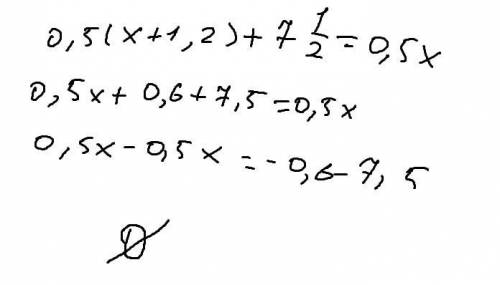 0,5(x+1,2)+7 1/2=0,5x
0,5x+0,6+7,5=0,5x
0,5x-0,5x=-0,6-7,5
Ø